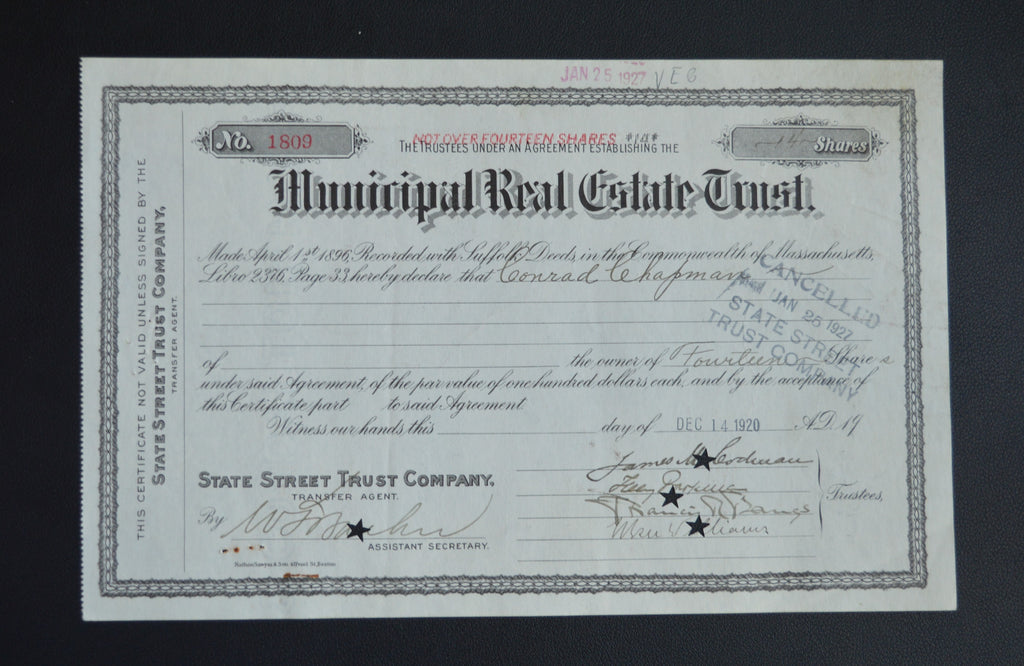 JAN 25 1927 VEG
No. 1809
NOT OVER FOURTEEN SHARES $14$
14 Shares
THE TRUSTEES UNDER AN AGREEMENT ESTABLISHING THE
Municipal Real Estate Trust.
Made April 1st 1896, Recorded with Suffolk Deeds, in the Commonwealth of Massachusetts,
Libro 2376, Page 33, hereby declare that Conrad Chapman
CANCELLED
JAN 25 1927
STATE STREET
TRUST COMPANY
of the owner of Fourteen Shares
under said Agreement, of the par value of one hundred dollars each, and by the acceptance of
this Certificate part to said Agreement
Witness our hands, this day of DEC 14 1920 A.D. 19
STATE STREET TRUST COMPANY.
TRANSFER AGENT.
By
ASSISTANT SECRETARY.
James M. Codman
Francis R. Bangs
Moses Williams
Trustees,
Nathan Sawyer & Son. Boston
THIS CERTIFICATE NOT VALID UNLESS SIGNED BY THE
STATE STREET TRUST COMPANY,
TRANSFER AGENT.